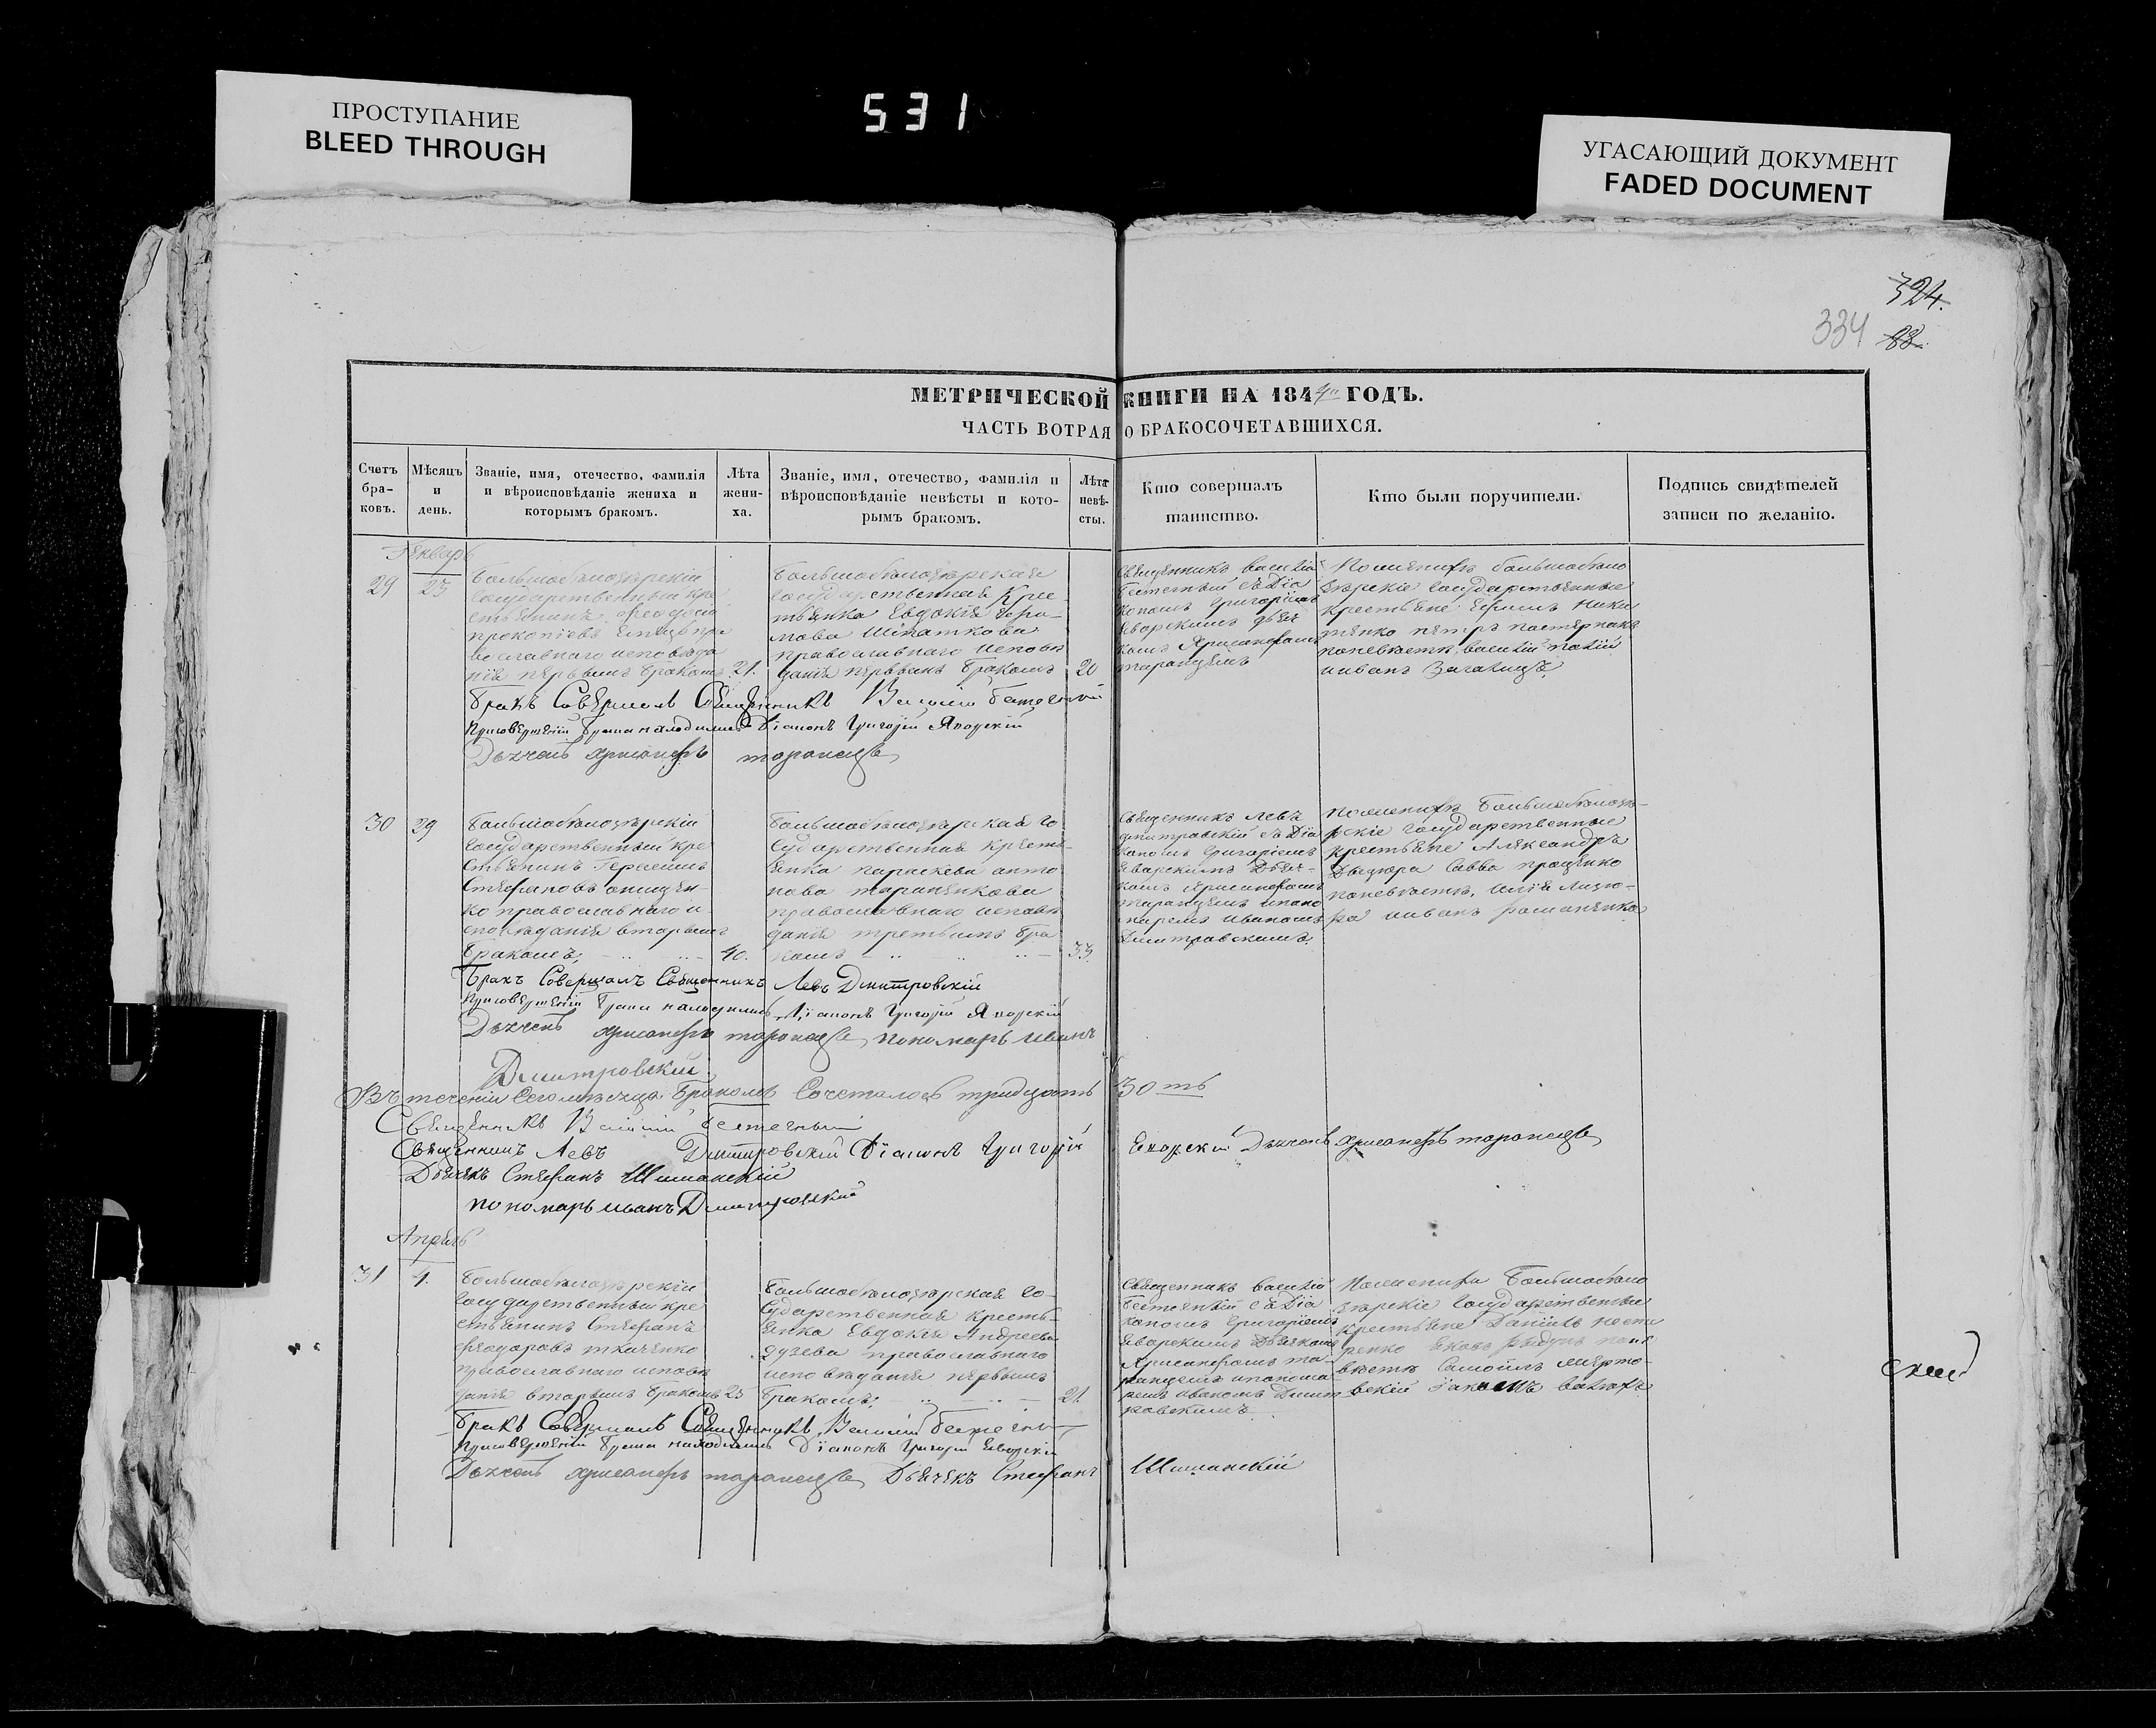 ПРОСТУПАНИЕ
BLEED THROUGH
531
УГАСАЮЩИЙ ДОКУМЕНТ
FADED DOCUMENT
324.
334 88.
МЕТРИЧЕСКОЙ КНИГИ НА 1844 ГОДЪ.
ЧАСТЬ ВОТРАЯ О БРАКОСОЧЕТАВШИХСЯ.
Счетъ бра- ковъ.
Мѣсяцъ и день.
Званіе, имя, отечество, фамилія и вѣроисповѣданіе жениха и которымъ бракомъ.
Лѣта жени- ха.
Званіе, имя, отечество, фамилія и вѣроисповѣданіе невѣсты и кото- рымъ бракомъ.
Лѣта невѣ- сты.
Кто совершалъ таинство.
Кто были поручители.
Подпись свидѣтелей записи по желанію.
Январь
29 23
Большобѣлозѣрскій
государственный кре
стьянинъ Феодосій
прокопіевъ
православнаго исповѣда
нія первымъ бракомъ 21.
Большобѣлозѣрская
государственная кре
стьянка Евдокія
православнаго исповѣ
данія первымъ бракомъ 20
Священникъ василій
бестечный съ діа
кономъ григоріемъ
яворскимъ дьяч
комъ Хрисанфомъ
таранцемъ
по женихѣ большобѣло
зѣрскіе государственные
крестьяне
петръ пастернакъ
по невѣстѣ василій
Бракъ Совершалъ Священникъ Василій Бестечный
присовершеніи брака находились Діаконъ Григорій Яворскій
Дьячекъ Хрисанфъ таранецъ
30 29
Большобѣлозѣрскій
государственный кре
стьянинъ Герасимъ
Стефановъ онищен-
ко православнаго и
сповѣданія вторымъ
бракомъ; 40.
Большобѣлозѣрская го
сударственная кресть
янка параскева анто
нова таранчикова
православнаго исповѣ
данія третьимъ бра
комъ 33.
Священникъ левъ
дмитровскій съ діа
кономъ григоріемъ
яворскимъ дьяч-
комъ Хрисанфомъ
таранцемъ и поно
маремъ иваномъ
дмитровскимъ.
по женихѣ большобѣлозѣ-
рскіе государственные
крестьяне Александръ
Савва проценко
по невѣстѣ, илія
иванъ романенко
Бракъ Совершалъ Священникъ Левъ Дмитровскій
присовершеніи брака находились Діаконъ Григорій Яворскій
Дьячекъ Хрисанфъ таранецъ пономарь иванъ
Дмитровскій.
Въ теченіи сего мѣсяца браковъ сочеталось тридцать 30ть
Священникъ Василій бестечный
Священникъ Левъ Дмитровскій Діаконъ Григорій Яворскій Дьячекъ Хрисанфъ таранецъ
Дьячекъ Стефанъ Шиманскій
пономарь иванъ Дмитровскій
Апрѣль
31 4.
Большобѣлозѣрскій
государственный кре
стьянинъ Стефанъ
феодоровъ ткаченко
православнаго исповѣ
данія вторымъ бракомъ 25
Большобѣлозѣрская го-
сударственная кресть-
янка Евдокія Андреева
православнаго
исповѣданія первымъ
бракомъ; 21.
Священникъ василій
бестечный съ діа
кономъ григоріемъ
яворскимъ дьячкомъ
Хрисанфомъ та-
ранцемъ и понома
ремъ иваномъ дмит
ровскимъ
по женихѣ большобѣло
зѣрскіе государственные
крестьяне Даніилъ несте
ренко яковъ по не
вѣстѣ Самойлъ
Бракъ Совершалъ Священникъ Василій бестечный
присовершеніи брака находились Діаконъ Григорій Яворскій
Дьячекъ Хрисанфъ таранецъ Дьячекъ Стефанъ Шиманскій